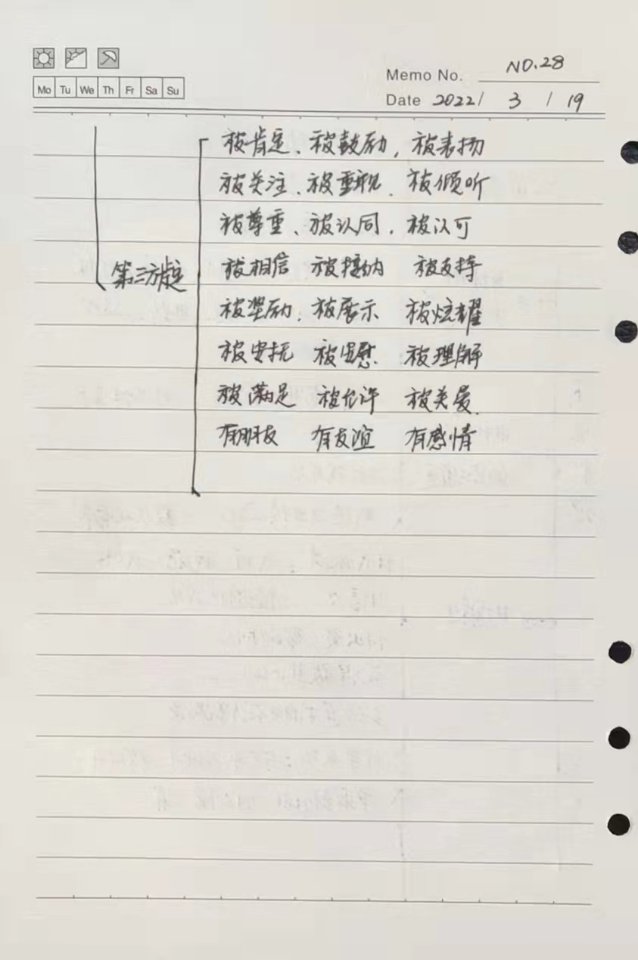 Mo Tu We Th Fr Sa Su
Memo No. NO.28
Date 2022/ 3 / 19
被肯定、被鼓励,被表扬
被关注、被重视、被倾听
被尊重、被认同,被认可
第三方定
被相信 被接纳 被支持
被奖励、被展示 被炫耀
被安抚 被安慰 被理解
被满足 被允许 被关爱.
有朋友 有友谊 有感情